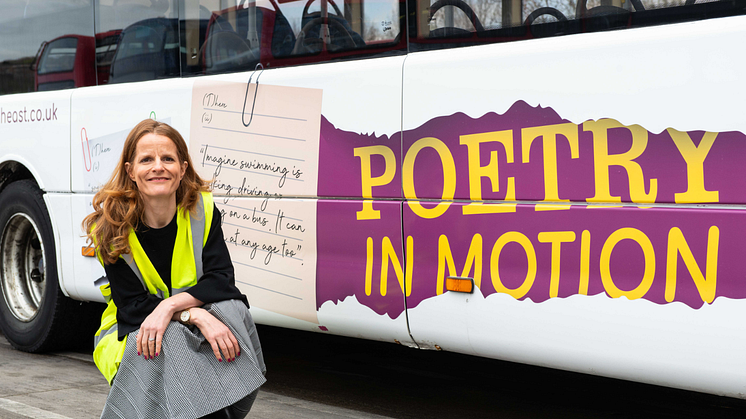 heast.co.uk
(T)hem
(w)
"Imagine swimming is
driving
g on a bus. It can
at any age too"
POETRY
IN MOTION